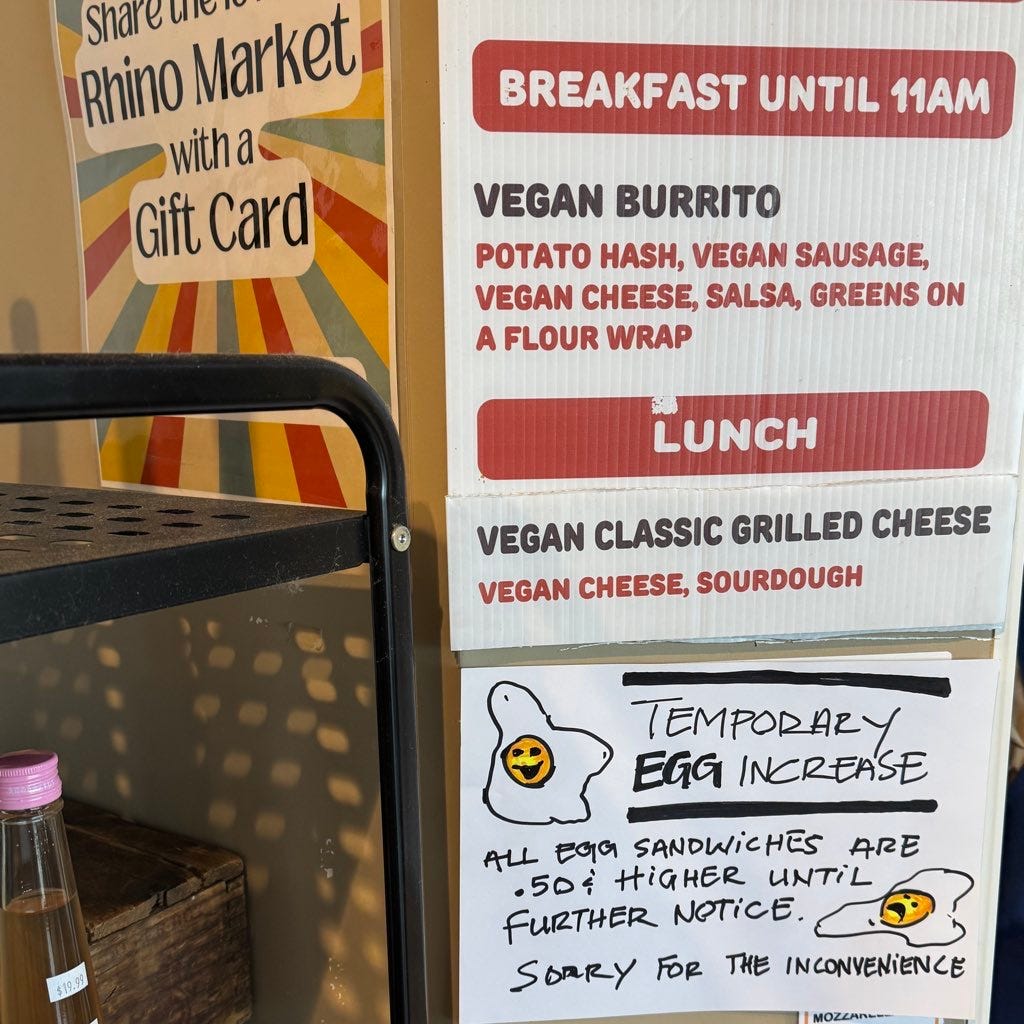 Share the
Rhino Market
with a
Gift Card
BREAKFAST UNTIL 11AM
VEGAN BURRITO
POTATO HASH, VEGAN SAUSAGE,
VEGAN CHEESE, SALSA, GREENS ON
A FLOUR WRAP
LUNCH
VEGAN CLASSIC GRILLED CHEESE
VEGAN CHEESE, SOURDOUGH
TEMPORARY
EGG INCREASE
ALL EGG SANDWICHES ARE
.50¢ HIGHER UNTIL
FURTHER NOTICE.
SORRY FOR THE INCONVENIENCE
$19.99